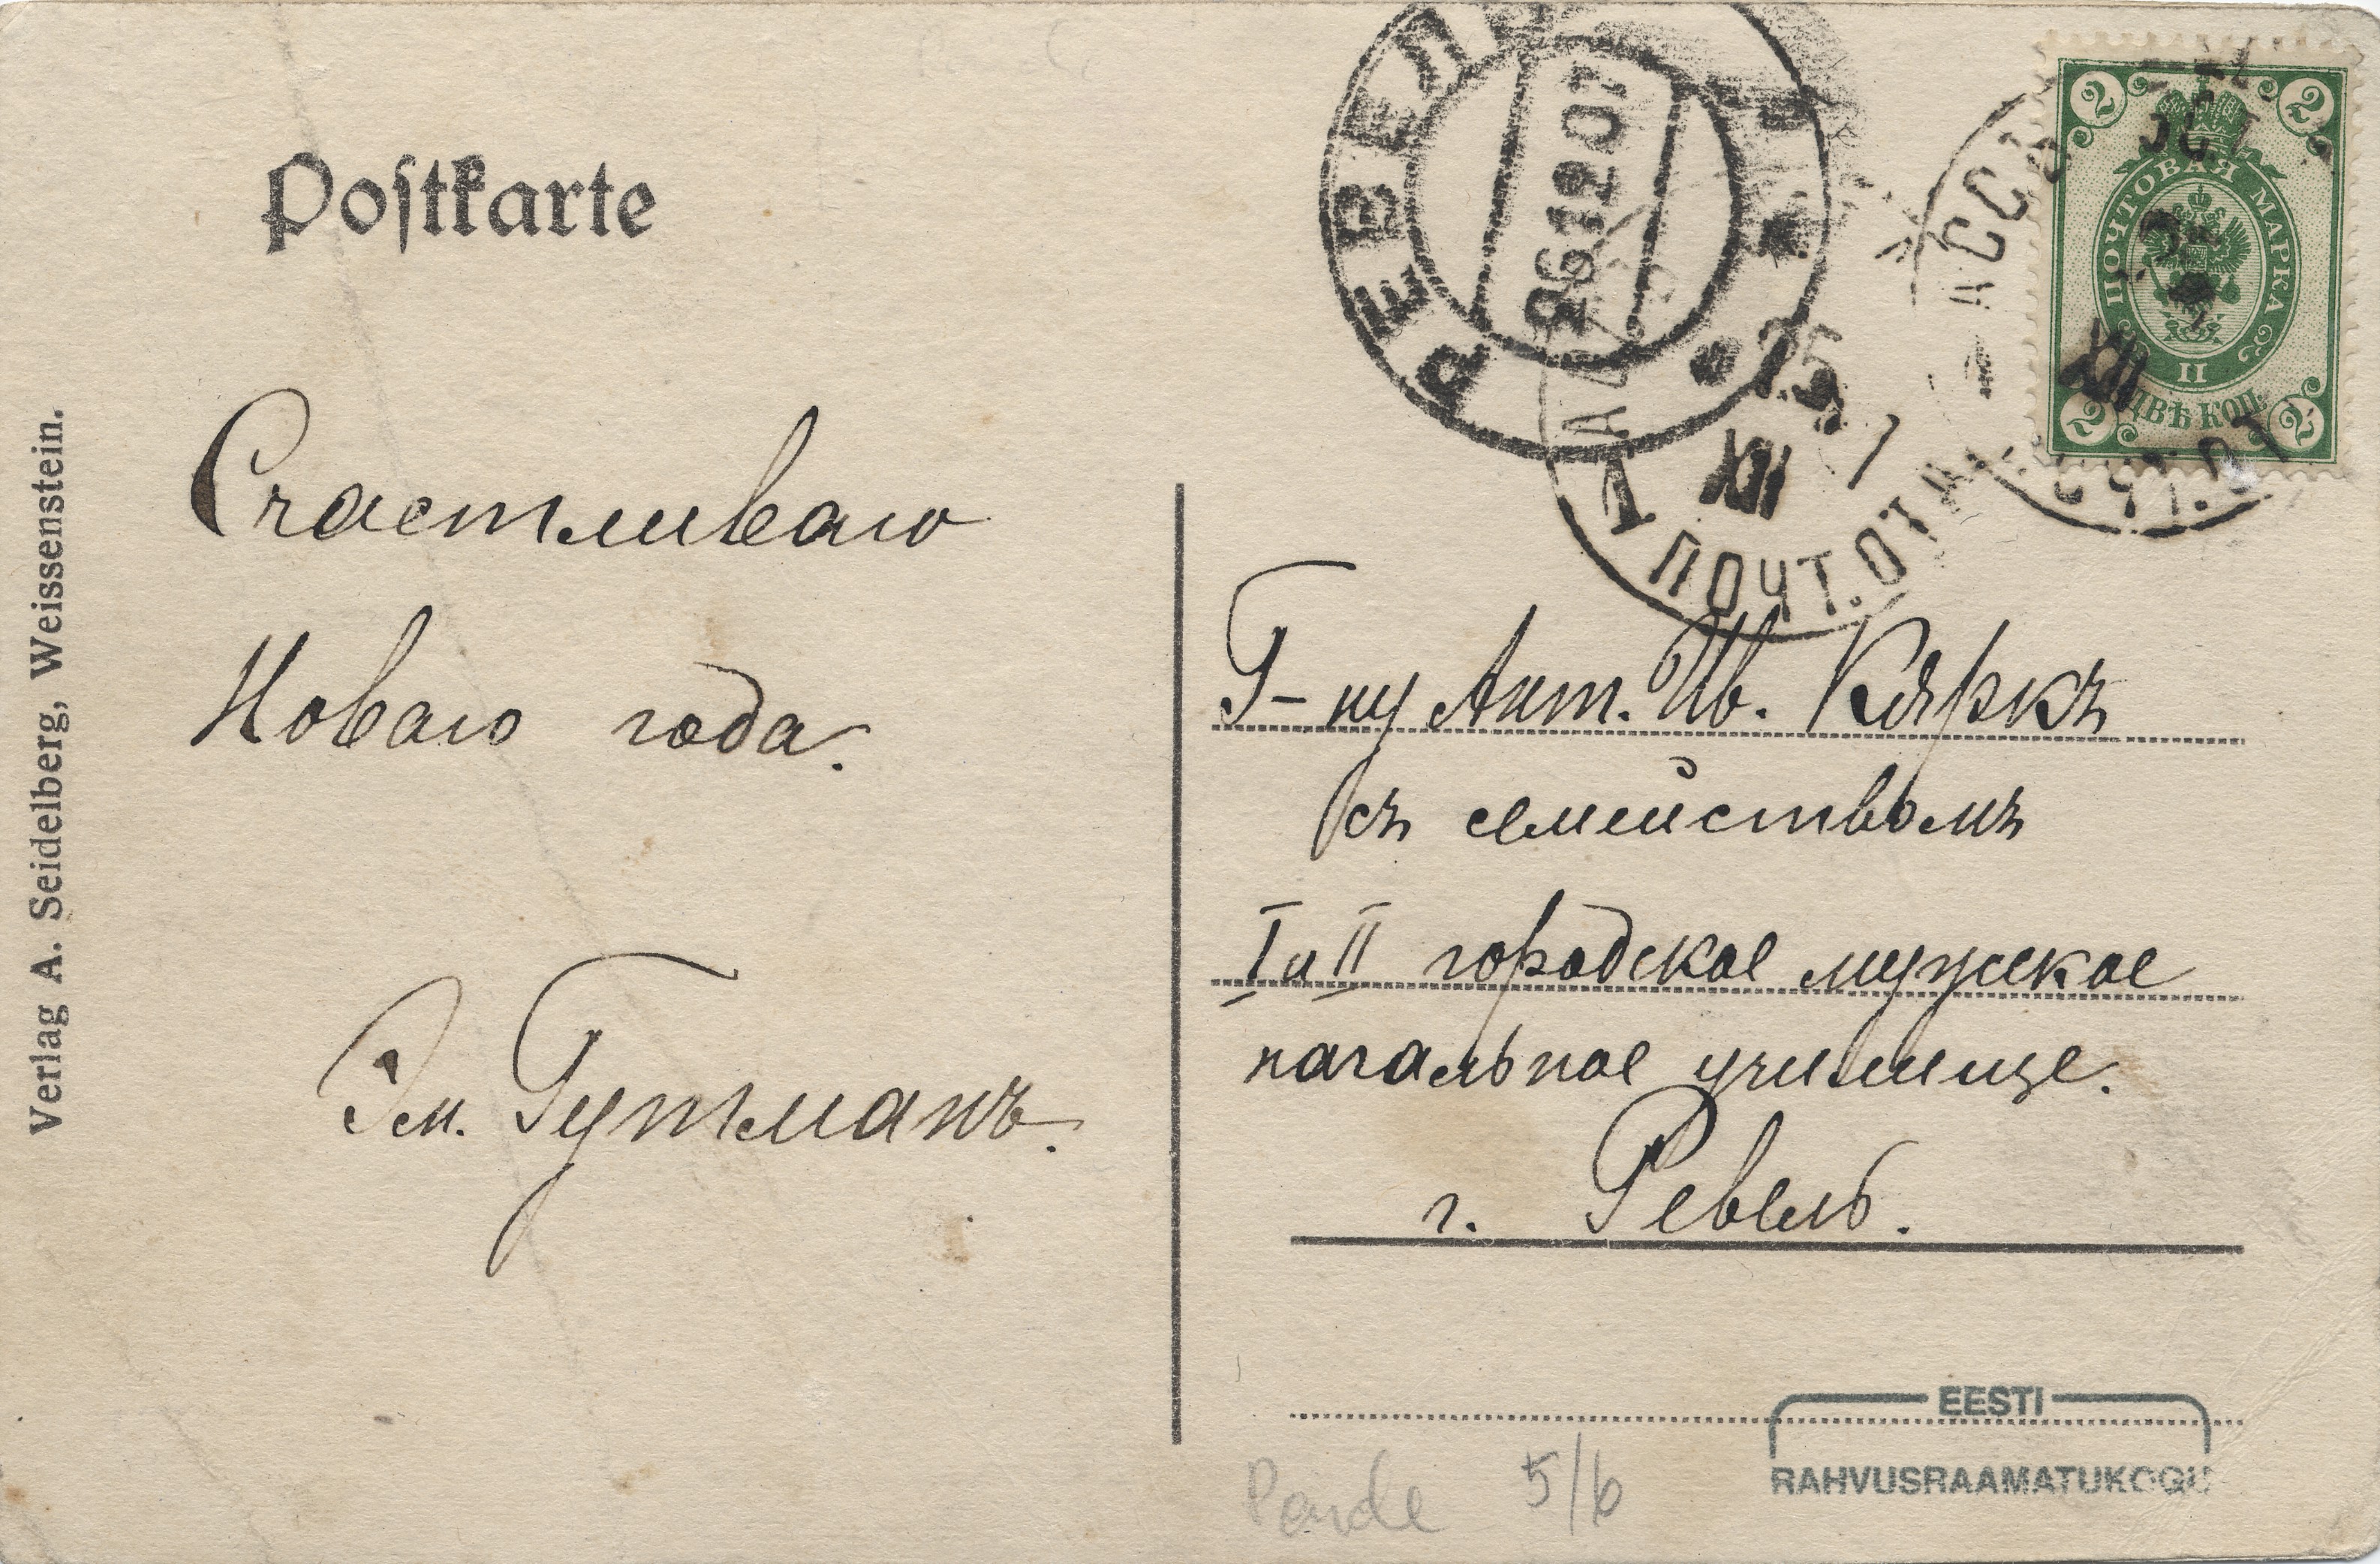 Postkarte
Verlag A. Seidelberg, Weissenstein.
Счастливаго
Новаго года.
Эм. Гутманъ.
РЕВЕЛЬ
26 12 07
25
XII
ПОЧТ. ОТД
XII
2 2
ПОЧТОВАЯ МАРКА
II
2 ДВѢ КОП. 2
Г-ну Ант. Ив. Кяркъ
съ семействомъ
I и II городское мужское
начальное училище.
г. Ревель.
EESTI
RAHVUSRAAMATUKOGU
Paide 5/6